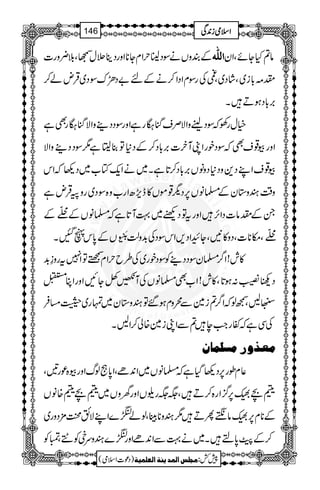 اسلامی زندگی 146
ماتم کیا جائے، ان الله کے بندوں نے سود لینا حرام جانا اور دینا حلال سمجھا، بلاضرورت
مقدمہ بازی، شادی، غمی کی رسوم ادا کرنے کے لئے بے دھڑک سودی قرض لے کر
برباد ہوتے ہیں۔
خیال رکھو کہ سود لینے والا صرف گناہگار ہے اور سود دینے والا گناہگار بھی ہے
بیوقوف بھی کہ سود خور اپنی آخرت برباد کر کے دنیا تو بنا لیتا ہے مگر سود دینے والا
بیوقوف اپنے دین و دنیا دونوں برباد کرتا ہے۔ میں نے ایک کتاب میں دیکھا کہ اس
وقت ہندوستان کے مسلمانوں پر دوسری قوموں کا ڈیڑھ ارب روپیہ سودی قرض ہے
جن کے مقدمات دائر ہیں اور یہ تو دیکھنے میں بہت آتا ہے کہ مسلمانوں کے محلے کے
محلے، مکانات، دوکانیں، جائیدادیں اسی سود کی بدولت بنیوں کے پاس پہنچ گئیں۔
کاش! اگر مسلمان سود دینے کو سودخوری کی طرح حرام سمجھتے تو انہیں یہ روز بد
دیکھنا نصیب نہ ہوتا، کاش! اب بھی مسلمانوں کی آنکھیں کھل جائیں اور اپنا مستقبل
سنبھالیں، سمجھ لو کہ اگر تم زمین سے محروم ہو گئے تو ہندوستان میں تمہاری حیثیت مسافر
کی سی ہے کہ کفار جب چاہیں تم سے اپنی زمین خالی کرالیں۔
معذور مسلمان
عام طور پر دیکھا گیا ہے کہ مسلمانوں میں اندھے، اپاہج لوگ اور بیوہ عورتیں،
یتیم بچے بھیک پر گزارہ کرتے ہیں، جگہ جگہ، ریلوں اور گھروں میں یتیم بچے یتیم خانوں
کے نام پر بھیک مانگتے پھرتے ہیں مگر ہندو نابینا، لولے لنگڑے اپنے لائق محنت مزدوری
کر کے پیٹ پالتے ہیں۔ میں نے بہت سے اندھے اور لنگڑے ہندو سرخی کوٹتے، تمباکو
پیش کش: مجلس المدینة العلمیة (دعوتِ اسلامی)